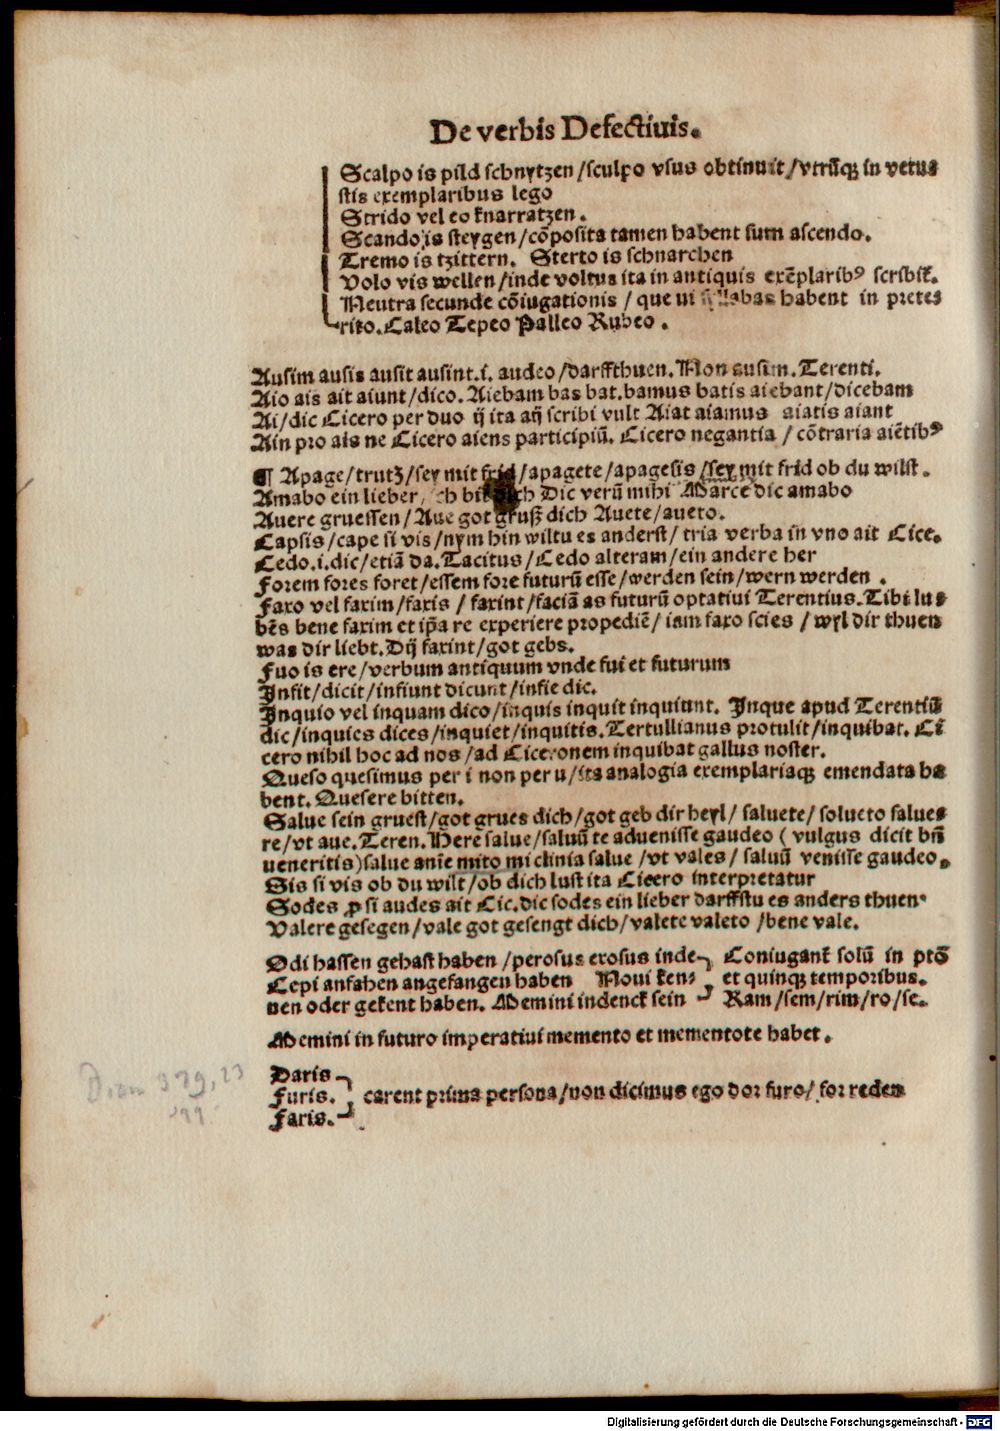 De verbis Defectiuis.
Scalpo is pild schnytzen /sculpo vsus obtinuit /vtrũq; in vetu⸗
stis exemplaribus lego
Strido vel eo knarratzen.
Scando is steygen /cõposita tamen habent sum ascendo.
Tremo is tzittern. Sterto is schnarchen
Volo vis wellen /inde voltus ita in antiquis exẽplarib⁹ scribit̃.
Neutra secunde cõiugationis / que ui syllabas habent in prete⸗
rito. Caleo Tepeo Palleo Rubeo.
Ausim ausis ausit ausint .i. audeo /darffthuen. Non ausim. Terenti.
Aio ais ait aiunt /dico. Aiebam bas bat. bamus batis aiebant /dicebam
Ai /dic Cicero per duo ij ita aij scribi vult Aiat aiamus aiatis aiant
Ain pro ais ne Cicero aiens participiũ. Cicero negantia / cõtraria aiẽtib⁹
¶ Apage /trutz /sey mit frid /apagete /apagesis /sey mit frid ob du wilst.
Amabo ein lieber, ch bit dich Dic verũ mihi Marce dic amabo
Auere gruessen /Aue got gruß dich Auete /aueto.
Capsis /cape si vis /nym hin wiltu es anderst / tria verba in vno ait Cice.
Cedo .i. dic /etiã da. Tacitus /Cedo alteram /ein andere her
Forem fores foret /essem fore futurũ esse /werden sein /wern werden.
Faxo vel faxim /faxis / faxint /faciã as futurũ optatiui Terentius. Tibi lu⸗
bẽs bene faxim et ip̃a re experiere propediẽ / iam faxo scies / wyl dir thuen
was dir liebt. Dij faxint /got gebs.
Fuo is ere /verbum antiquum vnde fui et futurum
Infit /dicit /infiunt dicunt /infie dic.
Inquio vel inquam dico /inquis inquit inquiunt. Inque apud Terentiũ
dic /inquies dices /inquiet /inquitis. Tertullianus protulit /inquibat. Ci
cero nihil hoc ad nos /ad Ciceronem inquibat gallus noster.
Queso quesimus per i non per u /ita analogia exemplariaq; emendata ha
bent. Quesere bitten.
Salue sein gruest /got grues dich /got geb dir heyl / saluete / solueto salue⸗
re /vt aue. Teren. Here salue /saluũ te aduenisse gaudeo ( vulgus dicit bñ
ueneritis) salue anĩe mi to mi clinia salue /vt vales / saluũ venisse gaudeo.
Sis si vis ob du wilt /ob dich lust ita Cicero interpretatur
Sodes ꝓ si audes ait Cic. dic sodes ein lieber darffstu es anders thuen
Valere gesegen /vale got gesengt dich /valete valeto /bene vale.
Odi hassen gehast haben /perosus exosus inde Coniugant̃ solũ in ptõ
Cepi anfahen angefangen haben Noui ken⸗ et quinq; temporibus.
nen oder gekent haben. Memini indenck sein Ram /sem /rim /ro /se.
Memini in futuro imperatiui memento et mementote habet.
Daris
Furis. carent prima persona /non dicimus ego dor furo / for reden
Faris.
Digitalisierung gefördert durch die Deutsche Forschungsgemeinschaft - DFG